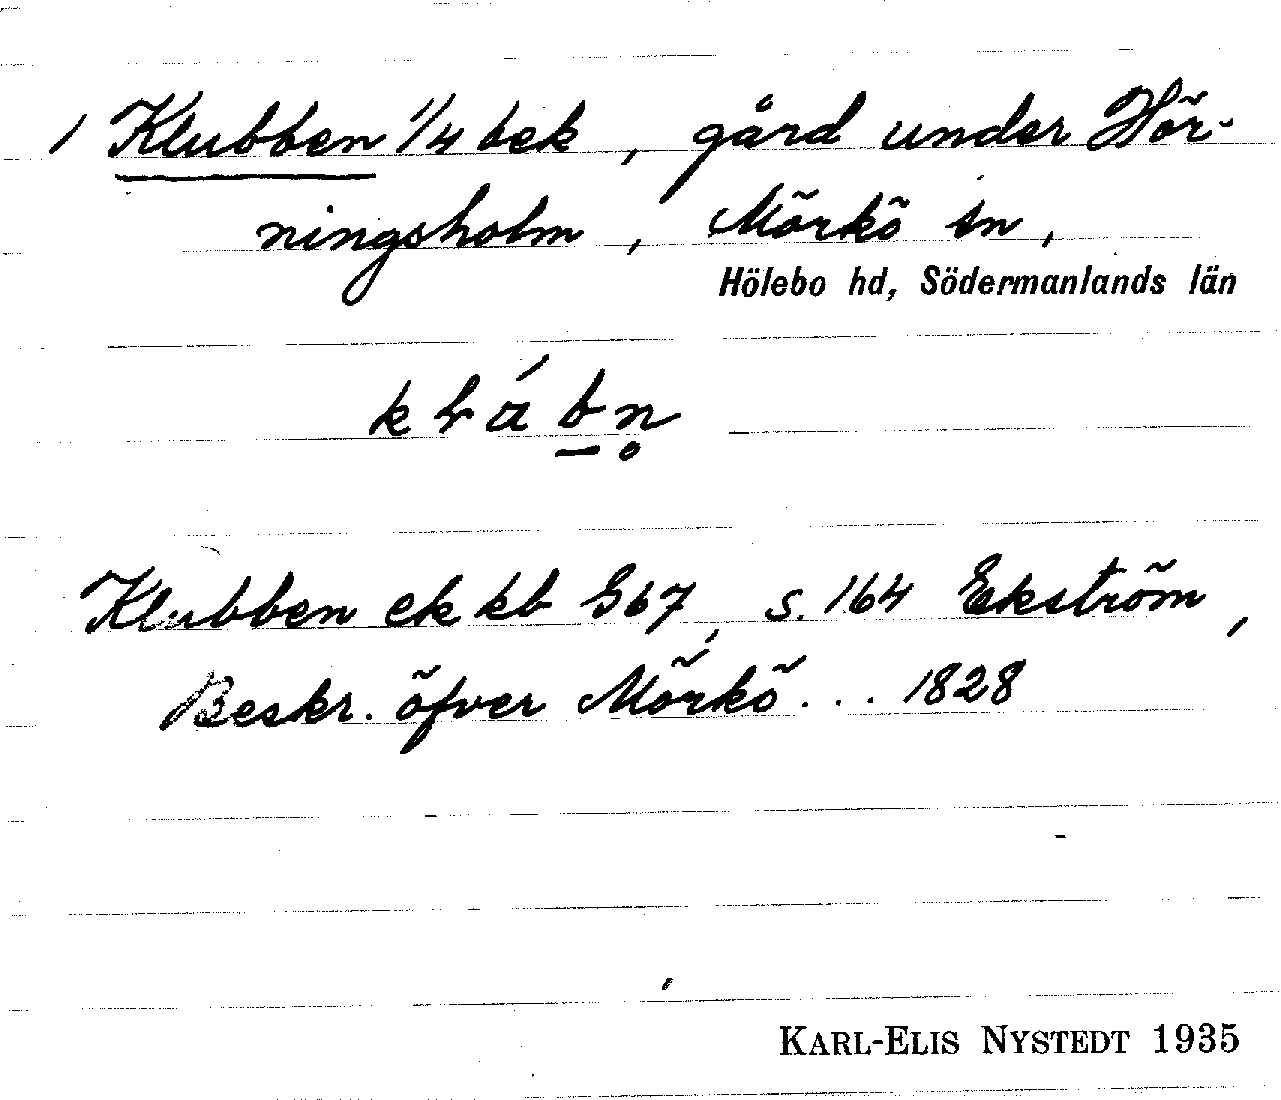 1 Klubben 1/4 bek, gård under Hör-
ningsholm, Mörkö sn,
Hölebo hd, Södermanlands län
Klubben ek kb G67, s. 164 Ekström,
Beskr. öfver Mörkö... 1828
KARL-ELIS NYSTEDT 1935